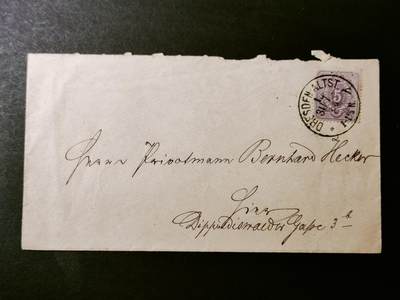 DRESDEN ALTST.
5
Herrn Privatmann Bernhard Hecker
Hier
Dippoldiswalder Gasse 3 b